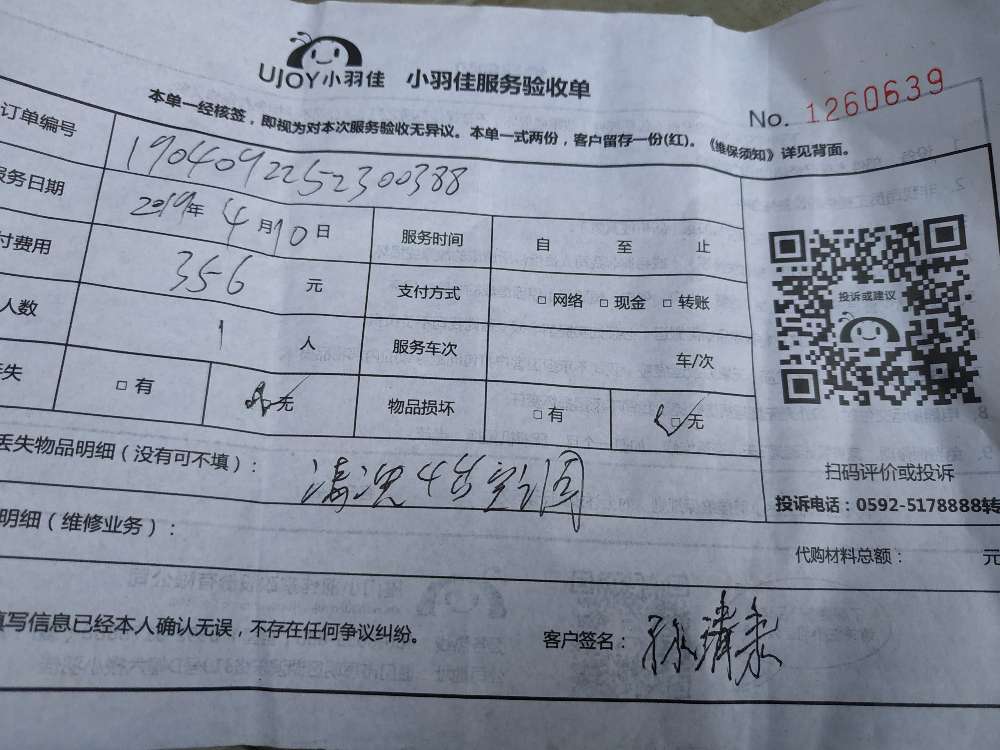 UJOY小羽佳 小羽佳服务验收单
No. 1260639
本单一经核签，即视为对本次服务验收无异议。本单一式两份，客户留存一份(红)。《维保须知》详见背面。
订单编号 1904092252300388
服务日期 2019年4月10日 服务时间 自 至 止
付费用 356 元 支付方式 □ 网络 □ 现金 □ 转账
人数 1 人 服务车次 车/次
丢失 □ 有 □ 无 物品损坏 □ 有 □ 无
投诉或建议
扫码评价或投诉
投诉电话：0592-5178888转
丢失物品明细（没有可不填）： 清洗4台空调
明细（维修业务）：
代购材料总额： 元
填写信息已经本人确认无误，不存在任何争议纠纷。 客户签名：